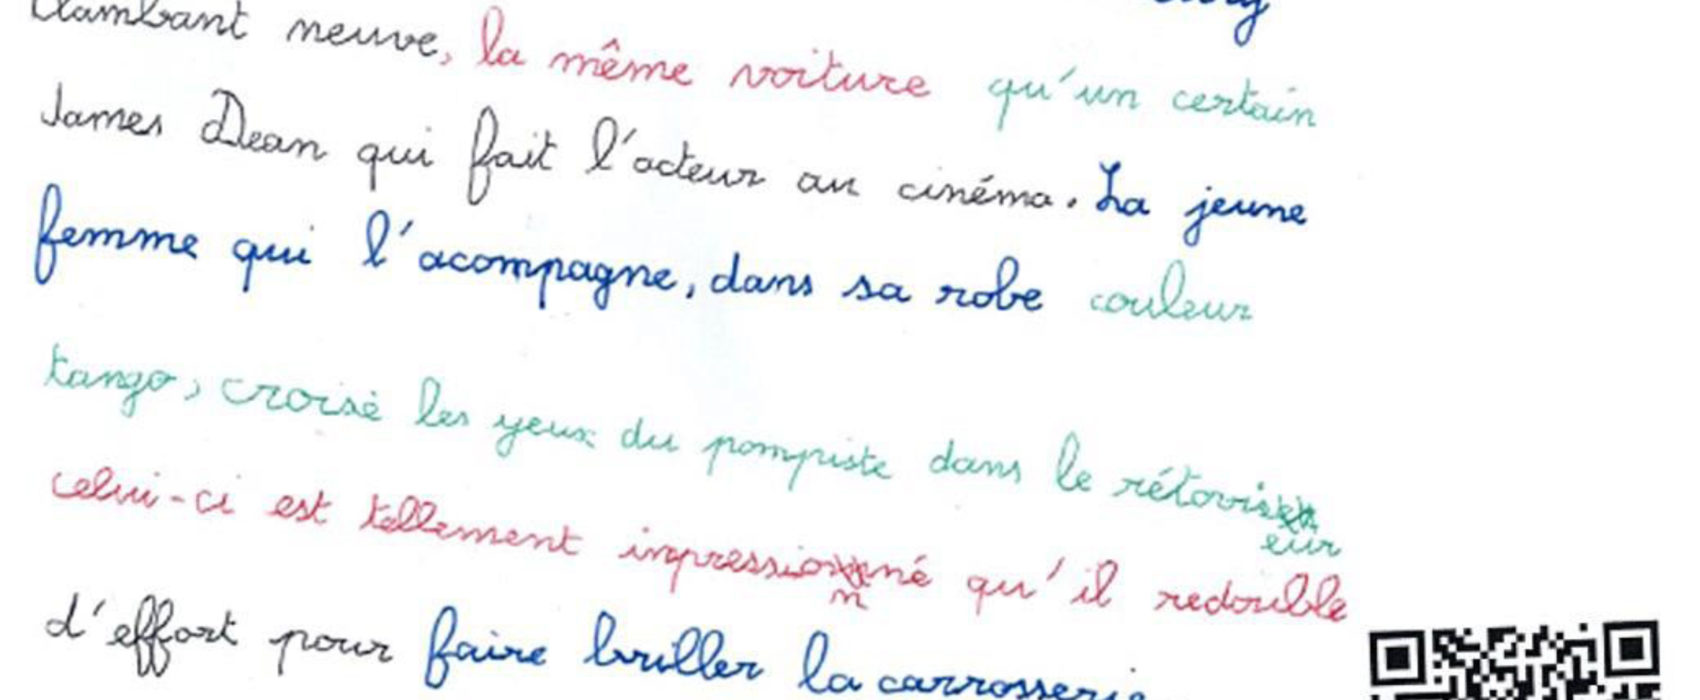 flambant neuve, la même voiture qu'un certain
James Dean qui fait l'acteur au cinéma. La jeune
femme qui l'acompagne, dans sa robe couleur
tango, croisé les yeux du pompiste dans le rétoviseur
celui-ci est tellement impressionné qu'il redouble
d'effort pour faire briller la carrosserie